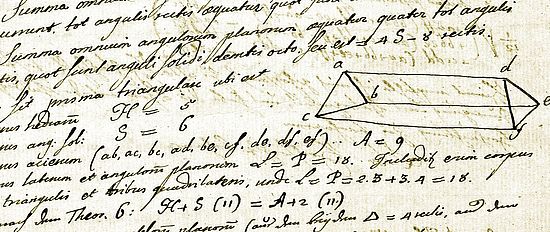 Summa omnium angulor
sument tot angulis rectis aequatur quot sunt
Summa omnium angulorum planorum aequatur quater tot angulis
tis, quot sunt anguli solidi, demtis octo. seu est = 4 S – 8 rectis.
Sit prisma triangulare ubi est
a d
b e
c f
hedrarum H = 5
ang. sol: S = 6
acierum (ab, ac, bc, ad, be, cf, de, df, ef) .. A = 9
laterum et angulorum planorum L = P = 18. enim corpus
triangulis et tribus quadrilateris, unde L = P = 2.3 + 3.4 = 18.
dem Theor. 6: H + S (11) = A + 2 (11)
planorum = 4 recti, und dem